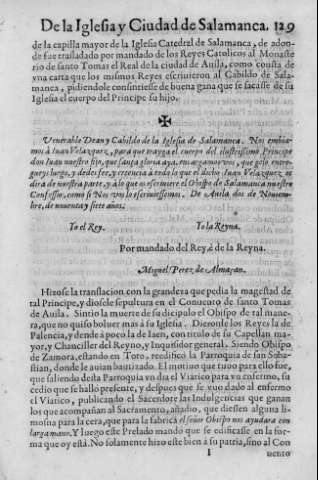 De la Iglesia y Ciudad de Salamanca. 129
de la capilla mayor de la Iglesia Catedral de Salamanca, de adon-
de fue trasladado por mandado de los Reyes Catolicos al Monaste
rio de santo Tomas el Real de la ciudad de Auila, como consta de
vna carta que los mismos Reyes escriuieron al Cabildo de Sala-
manca, pidiendole consintiese de buena gana que se sacase de su
Iglesia el cuerpo del Principe su hijo.
✠
Venerable Dean y Cabildo de la Iglesia de Salamanca. Nos embia-
mos à Iuan Velazquez, para que trayga el cuerpo del ilustrissimo Principe
don Iuan nuestro hijo, que santa gloria aya, encargamos vos, que gelo entre-
gueys luego, y dedes fee, y creencia à todo lo que el dicho Iuan Velazquez, os
dirà de nuestra parte, y à lo que os escriuiere el Obispo de Salamanca nuestro
Confessor, como si Nos vos lo escriuiessemos. De Auila dos de Nouiem-
bre, de nouenta y siete años.
Yo el Rey. Yo la Reyna.
Por mandado del Rey é de la Reyna.
Miguel Perez de Almaçan.
Hizose la translacion con la grandeza que pedia la magestad de
tal Principe, y diosele sepultura en el Conuento de santo Tomas
de Auila. Sintio la muerte de su dicipulo el Obispo de tal mane-
ra, que no quiso boluer mas à su Iglesia. Dieronle los Reyes la de
Palencia, y dende à poco la de Iaen, con titulo de su Capellan ma-
yor, y Chanciller del Reyno, y Inquisidor general. Siendo Obispo
de Zamora, estando en Toro, reedificò la Parroquia de san Seba-
stian, donde le auian bautizado. El motiuo que tuuo para ello fue,
que saliendo desta Parroquia vn dia el Viatico para vn enfermo, su
cedio que se hallo presente, y despues que se vuo dado al enfermo
el Viatico, publicando el Sacerdote las Indulgencias que ganan
los que acompañan al Sacramento, añadio, que diessen alguna li-
mosna para la cera, que para la fabrica el señor Obispo nos ayudara con
larga mano. Y luego este Prelado mando que se edificasse en la for-
ma que oy està. No solamente hizo este bien à su patria, sino al Con
I uento